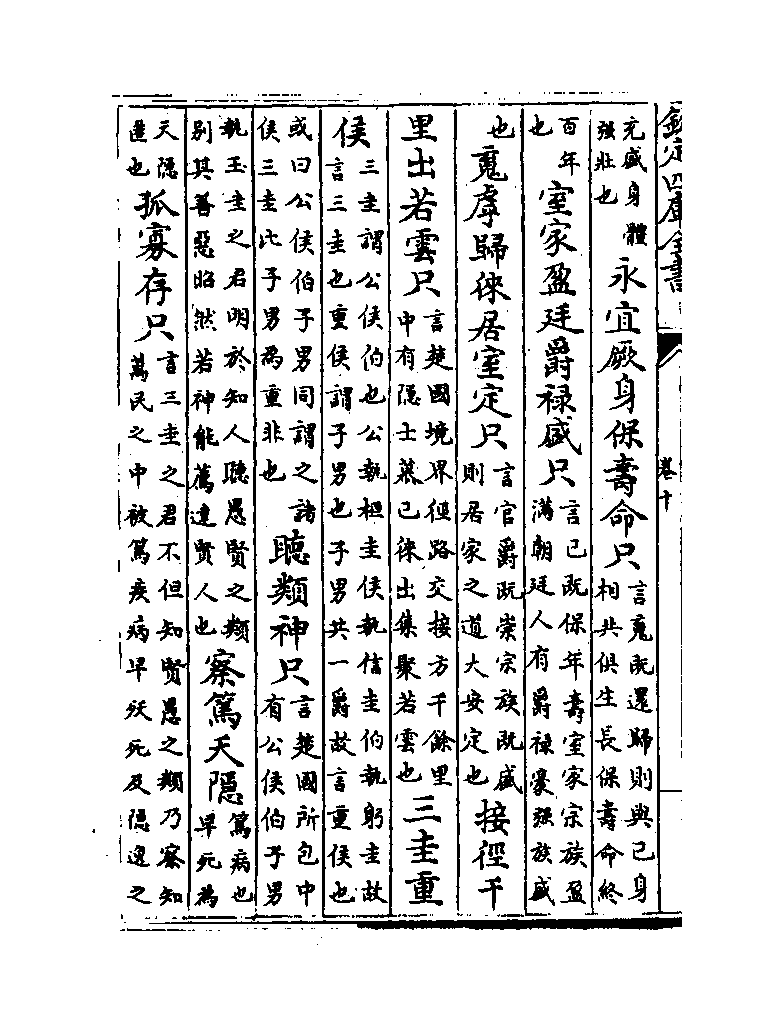 欽定四庫全書
卷十
充盛身體强壯也永宜厥身保壽命只言䰟既還歸則與己身相共俱生長保壽命終
百年也室家盈廷爵禄盛只言己既保年壽室家宗族盈滿朝廷人有爵禄豪强族盛
也䰟虖歸徠居室定只言官爵既崇宗族既盛則居家之道大安定也接徑千
里出若雲只言楚國境界徑路交接方千餘里中有隠士慕己徠出集聚若雲也三圭重
侯三圭謂公侯伯也公執桓圭侯執信圭伯執躬圭故言三圭也重侯謂子男也子男共一爵故言重侯也
或曰公侯伯子男同謂之諸侯三圭比子男為重非也聽類神只言楚國所包中有公侯伯子男
執玉圭之君明於知人聽愚賢之類别其善惡昭然若神能薦達賢人也察篤夭隠篤病也早死為
夭隠匿也孤寡存只言三圭之君不但知賢愚之類乃察知萬民之中被篤疾病早殀死及隠逸之